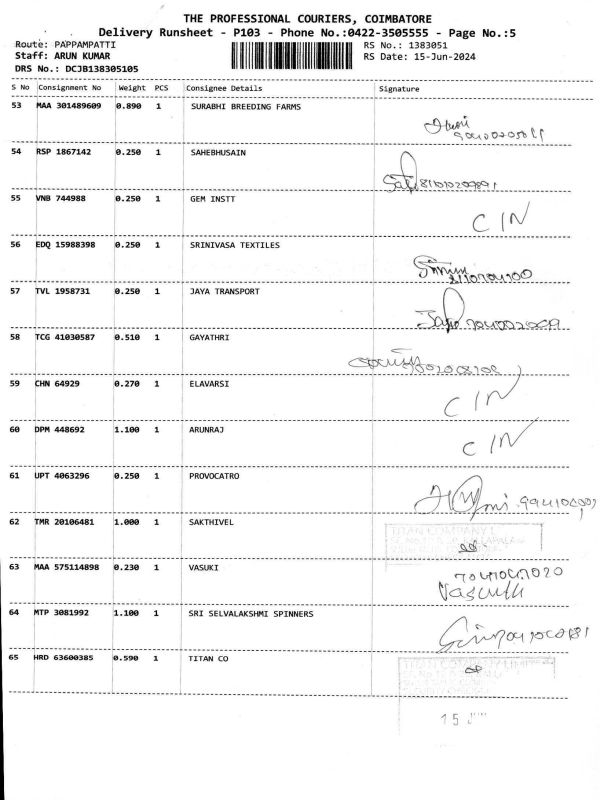 THE PROFESSIONAL COURIERS, COIMBATORE
Delivery Runsheet - P103 - Phone No.:0422-3505555 - Page No.:5
Route: PAPPAMPATTI RS No.: 1383051
Staff: ARUN KUMAR RS Date: 15-Jun-2024
DRS No.: DCJB138305105
S No Consignment No Weight PCS Consignee Details Signature
53 MAA 301489609 0.890 1 SURABHI BREEDING FARMS
54 RSP 1867142 0.250 1 SAHEBHUSAIN
55 VNB 744988 0.250 1 GEM INSTT
C IN
56 EDQ 15988398 0.250 1 SRINIVASA TEXTILES
57 TVL 1958731 0.250 1 JAYA TRANSPORT
58 TCG 41030587 0.510 1 GAYATHRI
59 CHN 64929 0.270 1 ELAVARSI
C IN
60 DPM 448692 1.100 1 ARUNRAJ
C IN
61 UPT 4063296 0.250 1 PROVOCATRO
62 TMR 20106481 1.000 1 SAKTHIVEL
TITAN COMPANY L
63 MAA 575114898 0.230 1 VASUKI
64 MTP 3081992 1.100 1 SRI SELVALAKSHMI SPINNERS
65 HRD 63600385 0.590 1 TITAN CO
TITAN COMPANY LIMITED
15